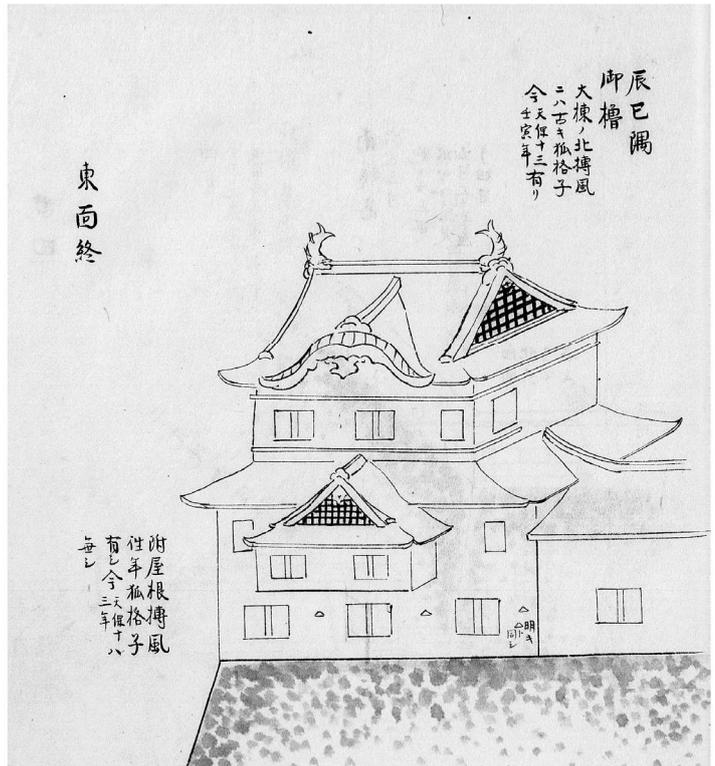 辰巳隅
御櫓
大棟ノ北搏風
ニハ古キ狐格子
今天保十三有リ
壬寅年
東面終
附屋根搏風
往年狐格子
有シ今天保十
三年ハ
無シ
明キ
同シ